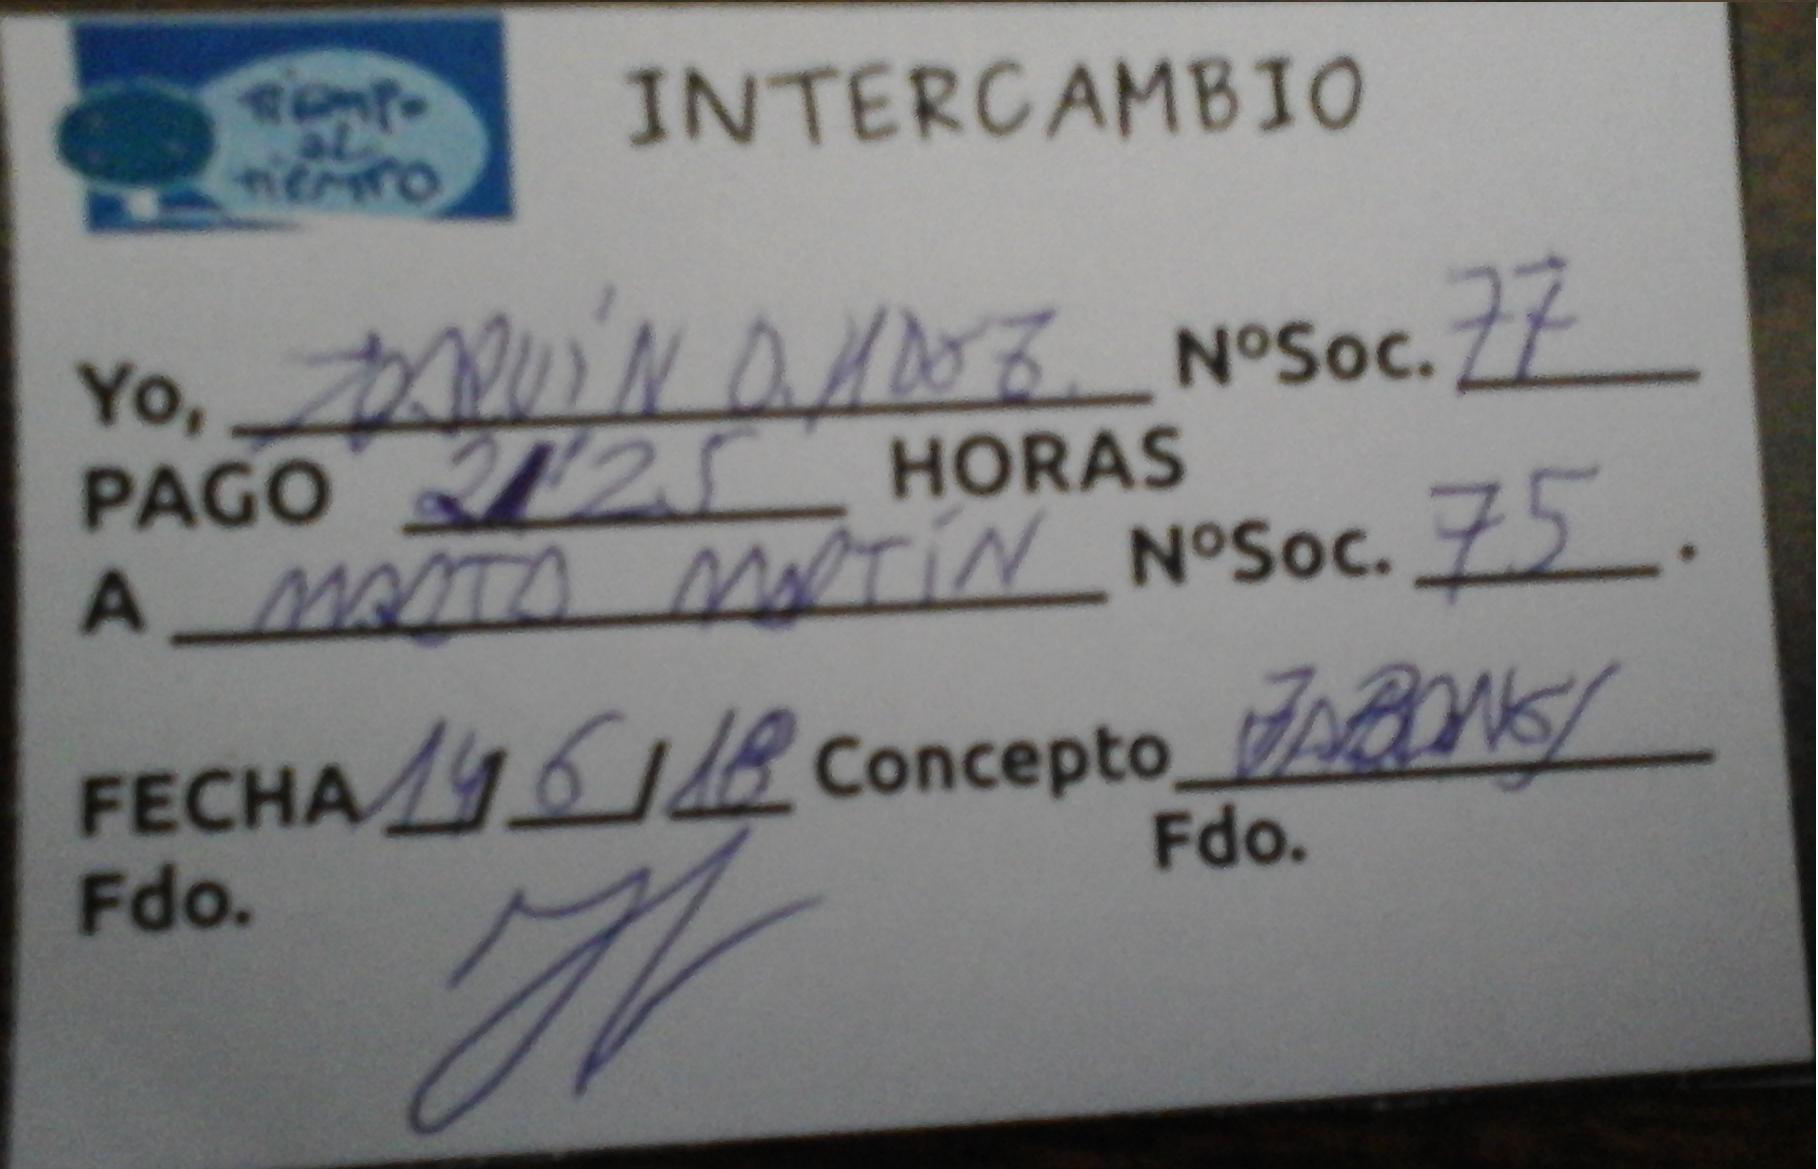 tiempo
al
tiempo
INTERCAMBIO
Yo, JOAQUÍN NºSoc. 77
PAGO HORAS
A MARTA MARTÍN NºSoc. 75.
FECHA 14/6/18 Concepto
Fdo. Fdo.